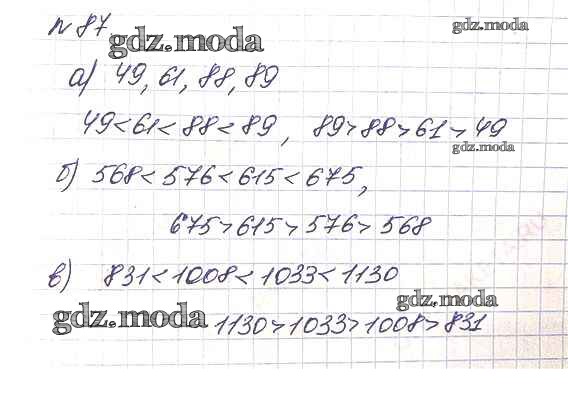 № 87
gdz.moda
gdz.moda
а) 49, 61, 88, 89
49 < 61 < 88 < 89, 89 > 88 > 61 > 49
gdz.moda
б) 568 < 576 < 615 < 675,
675 > 615 > 576 > 568
в) 831 < 1008 < 1033 < 1130
gdz.moda
gdz.moda
1130 > 1033 > 1008 > 831